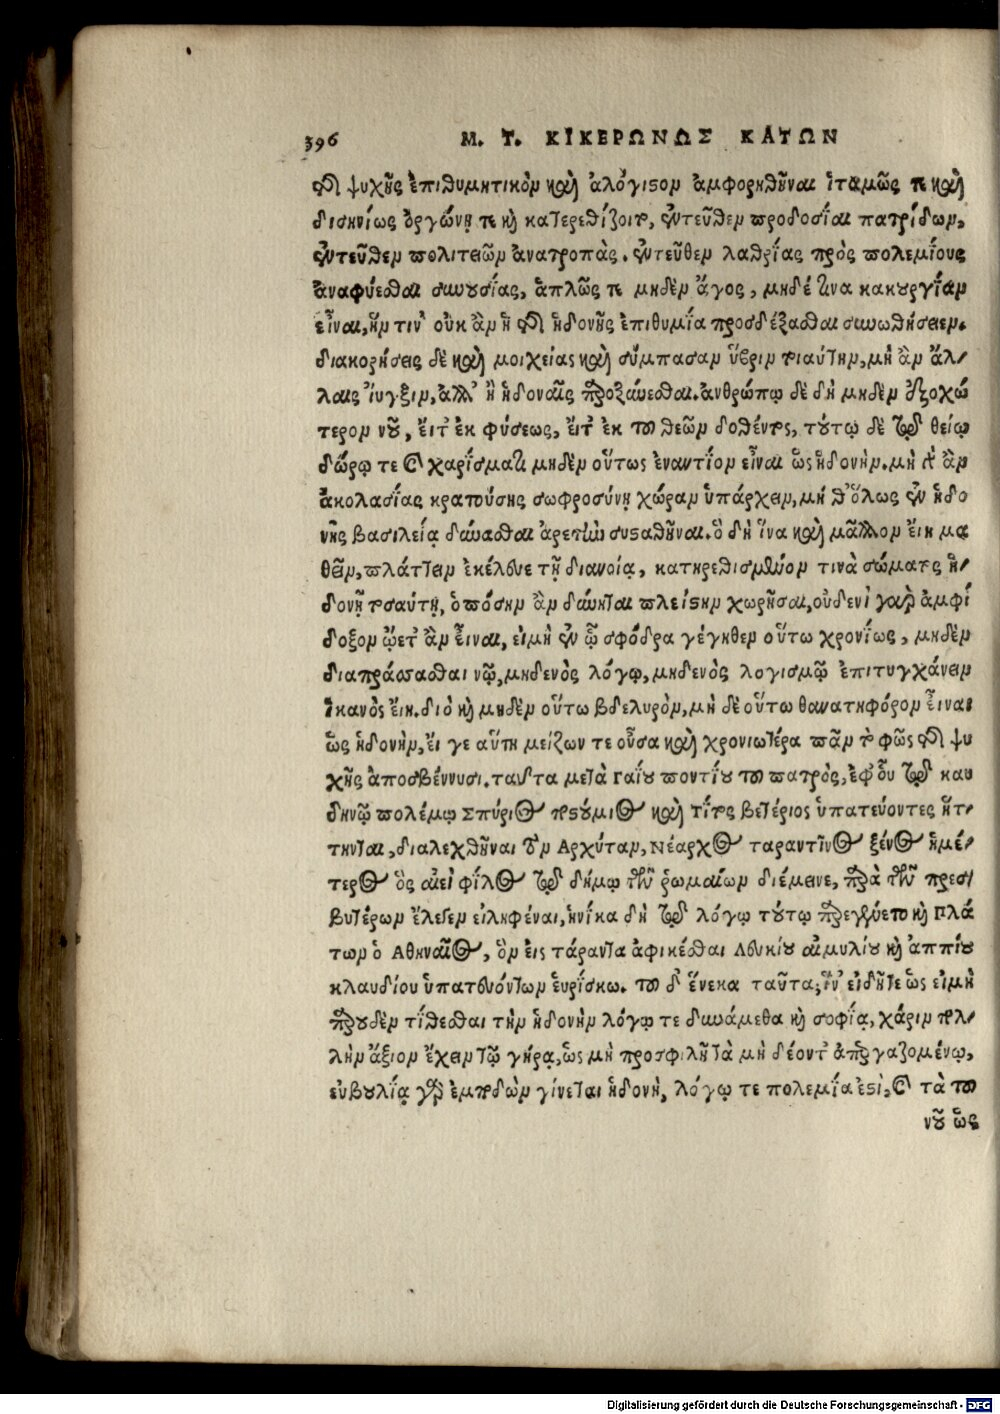 396 Μ. Τ. ΚΙΚΕΡΩΝΩΣ ΚΑΤΩΝ
τῆς ψυχῆς ἐπιθυμητικὸν καὶ ἀλόγιστον ἀμφορηθῆναι ἰταμῶς τε καὶ
δυσηνίως ὀργώνη τε καὶ κατερεθίζοιτο, ἐντεῦθεν προδοσίαι πατρίδων,
ἐντεῦθεν πολιτειῶν ἀνατροπὰς. ἐντεῦθεν λαθρίας πρὸς πολεμίους
ἀναφύεσθαι συνουσίας, ἁπλῶς τε μηδὲν ἄγος, μηδέ τινα κακουργίαν
εἶναι, ἥν τιν' οὐκ ἂν ἡ τῆς ἡδονῆς ἐπιθυμία προσδέξασθαι συνωθήσειεν.
διακορήσεις δὲ καὶ μοιχείας καὶ σύμπασαν ὕβριν τοιαύτην, μὴ ἂν ἄλ-
λαις ἴυγξιν, ἀλλ' ἢ ἡδοναῖς προξάνεσθαι. ἀνθρώπῳ δὲ δὴ μηδὲν ἐξοχώ
τερον νοῦ, εἴτ' ἐκ φύσεως, εἴτ' ἐκ του θεῶν δοθέντος, τούτῳ δὲ τῷ θείῳ
δώρῳ τε καὶ χαρίσματι μηδὲν οὕτως ἐναντίον εἶναι ὡς ἡδονὴν. μὴ δ' ἂν
ἀκολασίας κρατούσης σωφροσύνῃ χώραν ὑπάρχειν, μή θ' ὅλως ἐν ἡδο
νῆς βασιλείᾳ δύνασθαι ἀρετὴν συσταθῆναι. ὃ δὴ ἵνα καὶ μᾶλλον εἴη μα
θεῖν, πλάττειν ἐκέλευε τῇ διανοίᾳ, κατηρεθισμένον τινὰ σώματος ἡ-
δονῇ τοσαύτῃ, ὁπόσην ἂν δύνηται πλείστην χωρῆσαι, οὐδενὶ γαρ ἀμφί
δοξον ᾤετ' ἂν εἶναι, εἰμὴ ἐν ᾧ σφόδρα γέγηθεν οὕτω χρονίως, μηδὲν
διαπράσασθαι νῷ, μηδενὸς λόγῳ, μηδενὸς λογισμῷ ἐπιτυγχάνειν
ἱκανὸς εἴη. διὸ καὶ μηδὲν οὕτω βδελυρὸν, μὴ δὲ οὕτω θανατηφόρον εἶναι
ὡς ἡδονὴν, εἴ γε αὕτη μείζων τε οὖσα καὶ χρονιωτέρα πᾶν τὸ φῶς τῆς ψυ
χῆς ἀποσβέννυσι. ταῦτα μετὰ Γαΐου ποντίου του πατρὸς, ἐφ' οὗ τῷ καυ
δηνῷ πολέμῳ Σπύριος ποστούμιος καὶ Τίτος βετέριος ὑπατεύοντες ἥτ-
τηνται, διαλεχθῆναι τὸν Αρχύταν, Νέαρχος ταραντῖνος ξένος ἡμέ-
τερος ὃς αἰεὶ φίλος τῷ δήμῳ τῶν ῥωμαίων διέμεινε, παρὰ τῶν πρεσ-
βυτέρων ἔλεγεν εἰληφέναι, ἡνίκα δὴ τῷ λόγῳ τούτῳ παρεγένετο καὶ Πλά
των ὁ Αθηναῖος, ὃν εἰς τάραντα ἀφικέσθαι Λευκίου αἰμυλίου καὶ ἀππίου
κλαυδίου ὑπατευόντων εὑρίσκω. του δ' ἕνεκα ταῦτα; ἵν' εἰδῆτε ὡς εἰμὴ
παρουδὲν τίθεσθαι τὴν ἡδονὴν λόγῳ τε δυνάμεθα καὶ σοφίᾳ, χάριν πολ-
λὴν ἄξιον ἔχειν τῷ γήρᾳ, ὡς μὴ προσφιλῆ τὰ μὴ δέοντ' ἀπεργαζομένῳ,
εὐβουλίᾳ γὰρ ἐμποδὼν γίνεται ἡδονὴ, λόγῳ τε πολεμία ἐστὶ, καὶ τὰ του
νοῦ ὡς
Digitalisierung gefördert durch die Deutsche Forschungsgemeinschaft - DFG